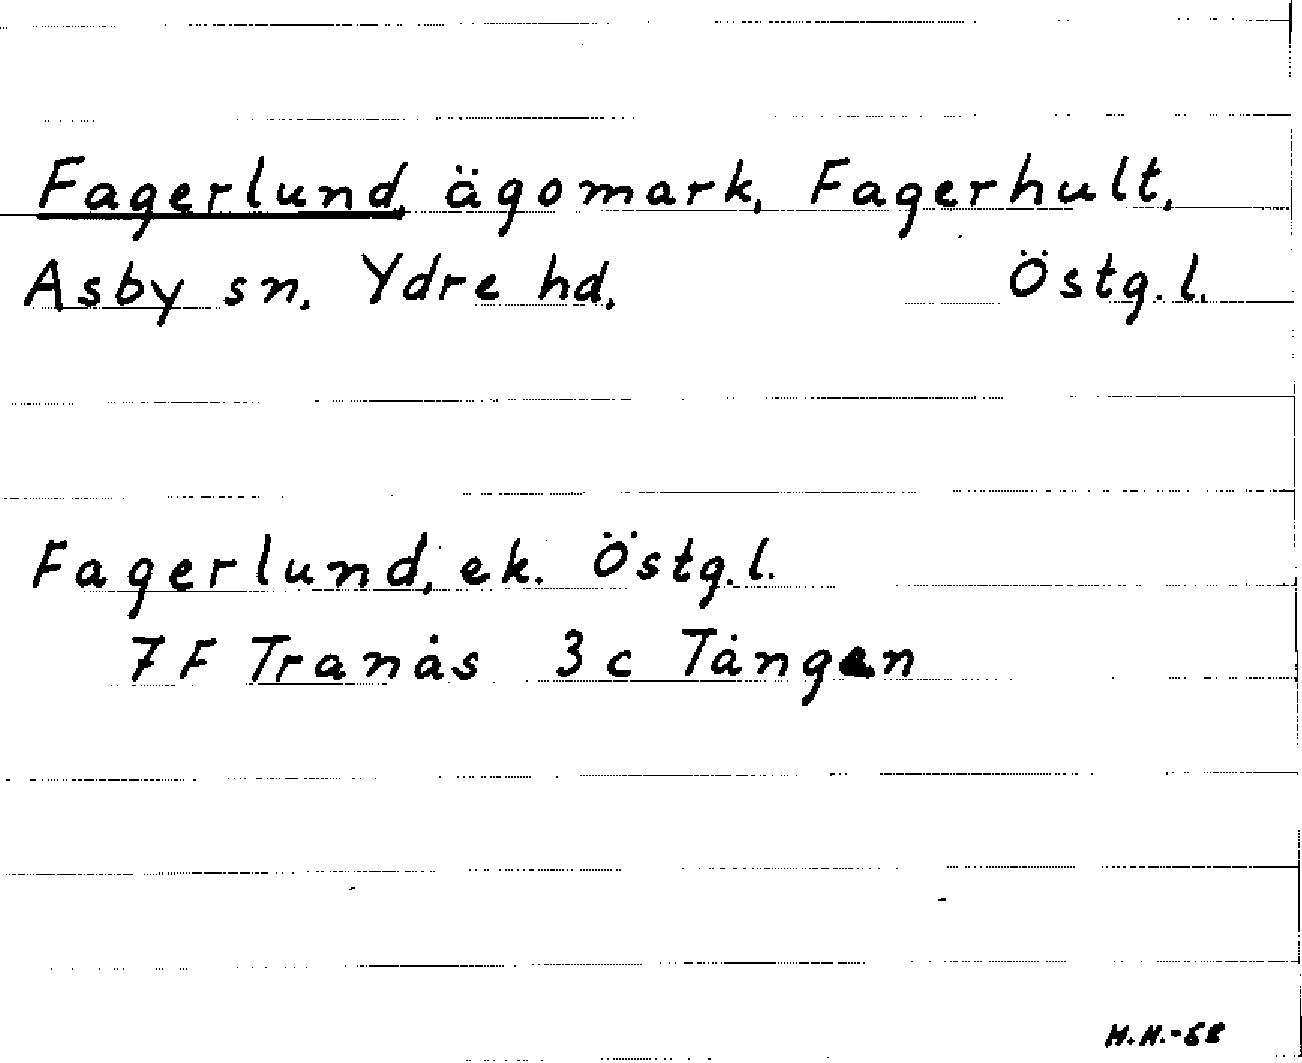 Fagerlund, ägomark, Fagerhult,
Asby sn. Ydre hd. Östg.l.
Fagerlund, ek. Östg.l.
7 F Tranås 3 c Tången
M.M.-68